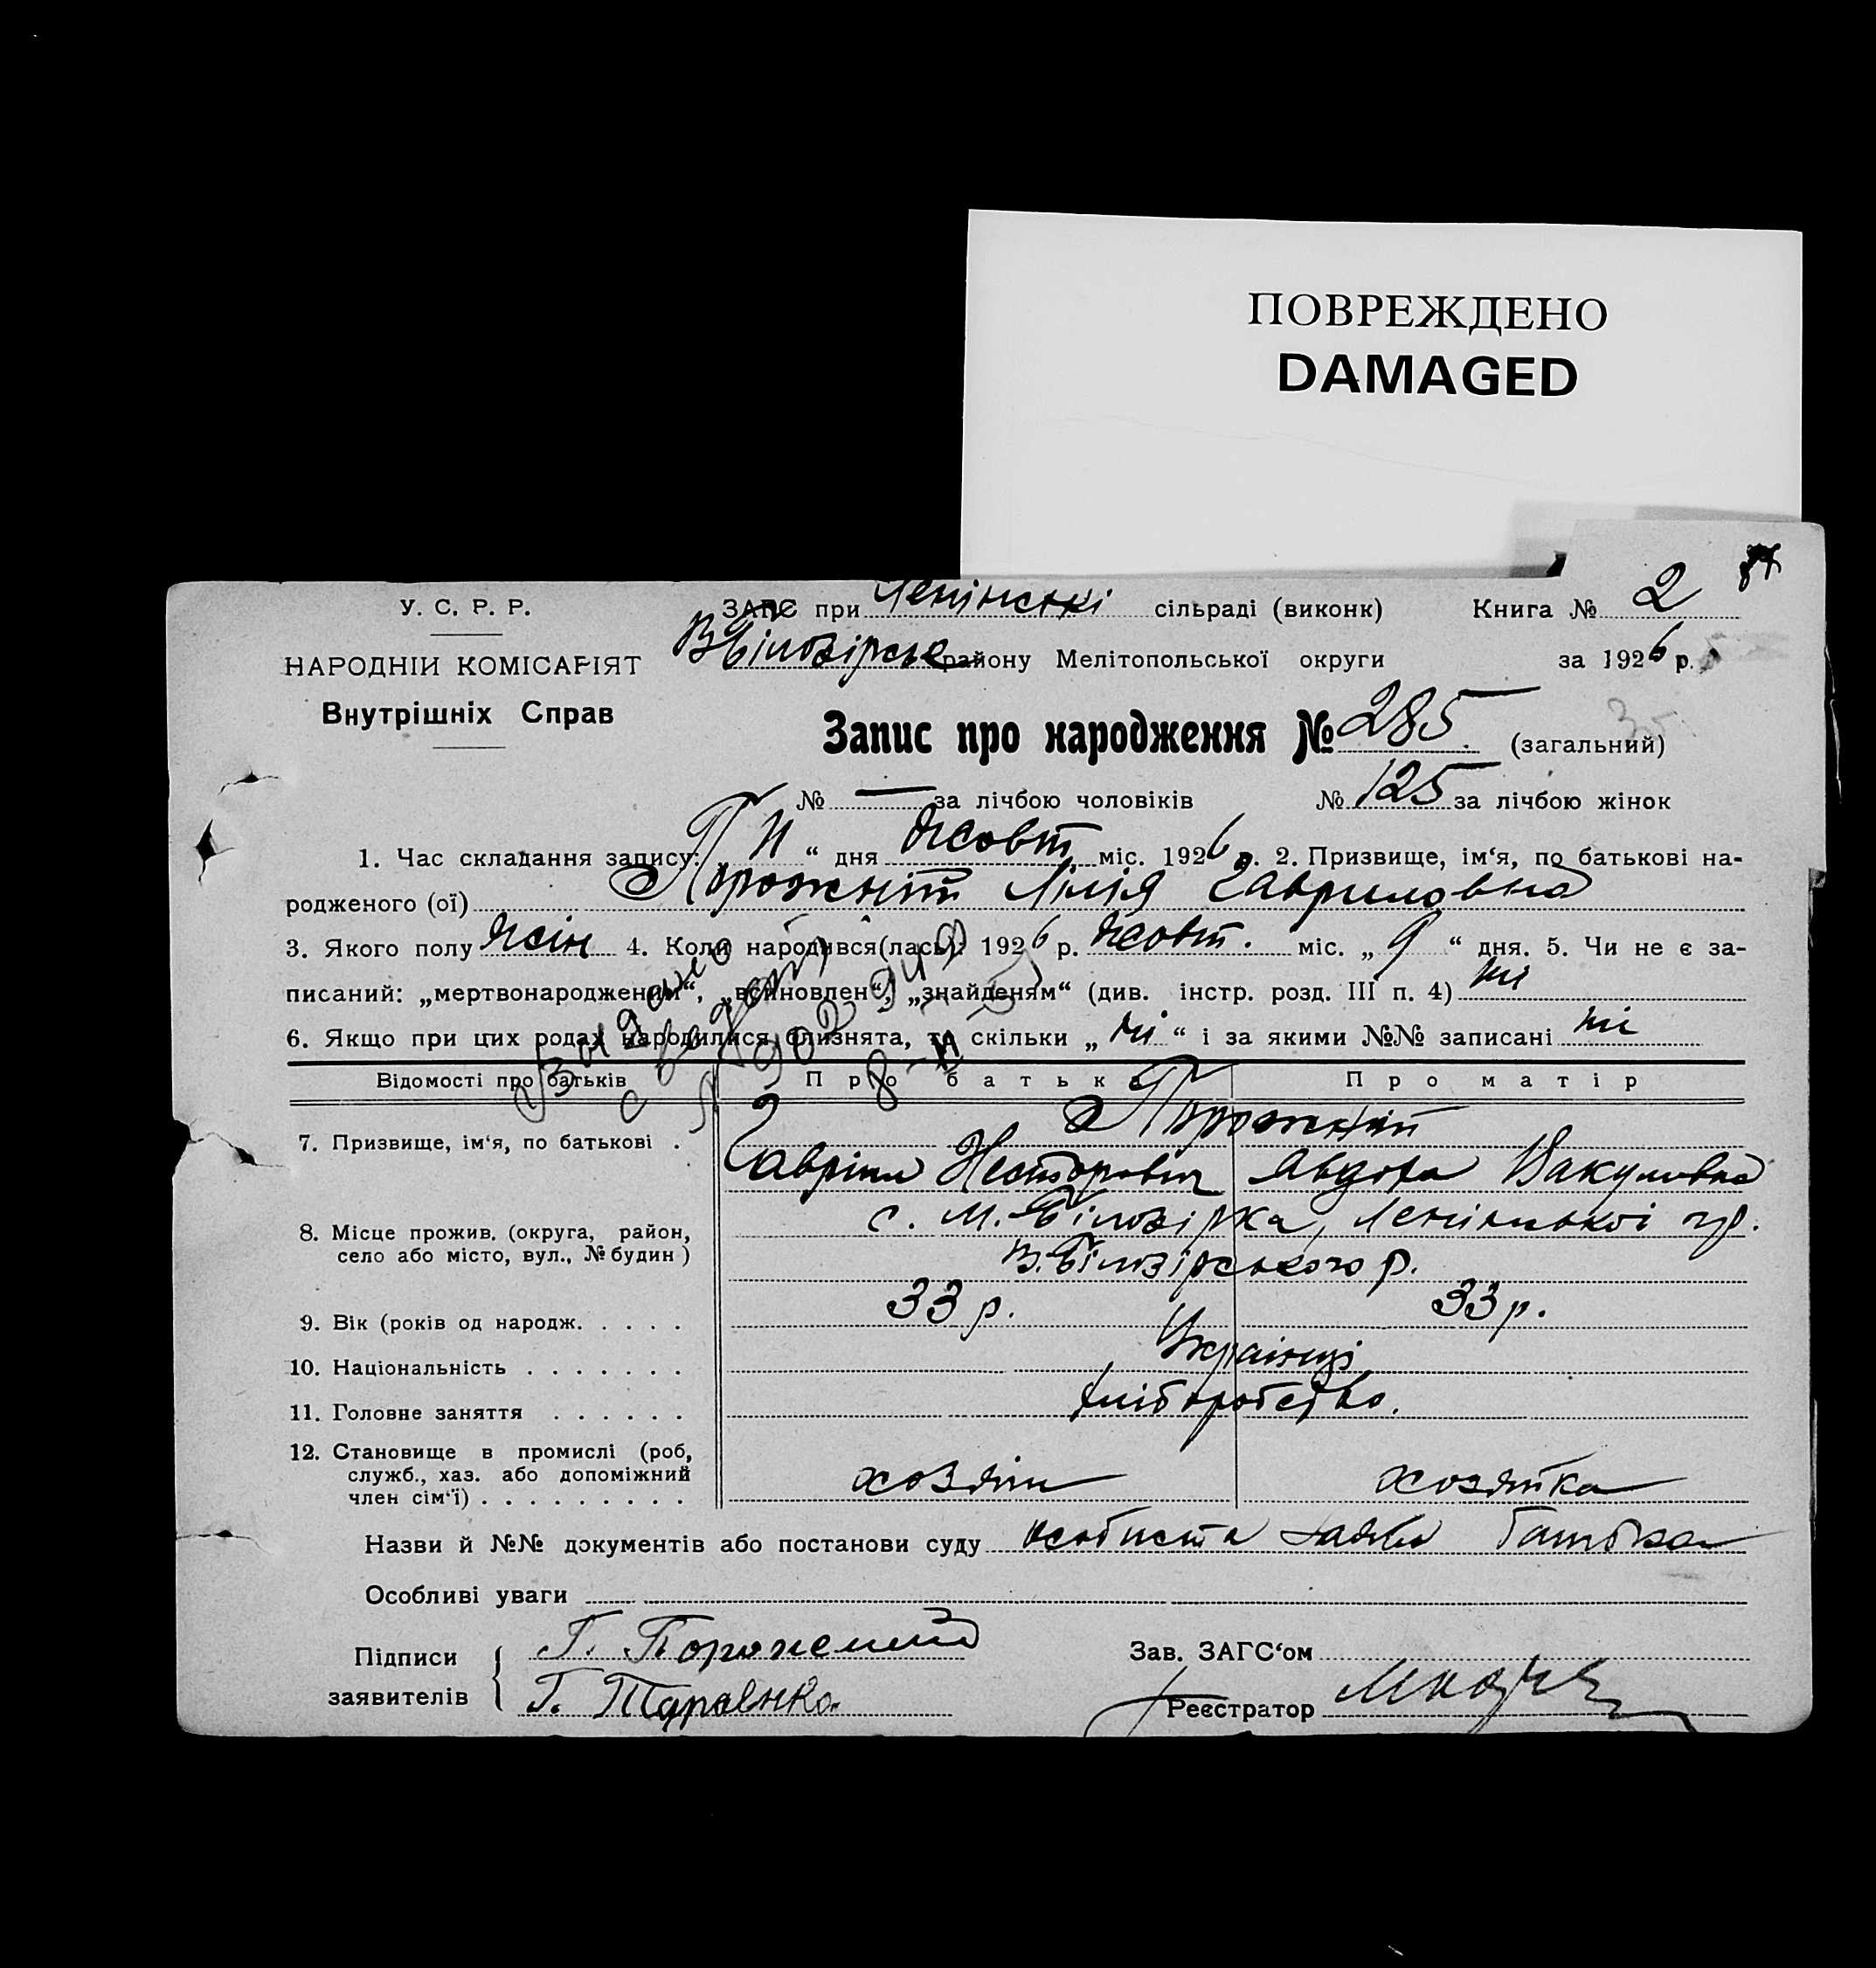 ПОВРЕЖДЕНО
DAMAGED
У. С. Р. Р.
НАРОДНІЙ КОМІСАРІЯТ
Внутрішніх Справ
ЗАГС при Ленінські сільраді (виконк) Книга № 2
ВБілозірське району Мелітопольської округи за 1926 р.
Запис про народження № 285 (загальний)
№ — за лічбою чоловіків № 125 за лічбою жінок
1. Час складання запису: „11“ дня жовт міс. 1926 р. 2. Призвище, ім‘я, по батькові на-
родженого (ої) Порожній Лілія Гавриловна
3. Якого полу жін 4. Коли народився(лась): 1926 р. жовт. міс. „9“ дня. 5. Чи не є за-
писаний: „мертвонародженим“, „всиновлен“, „знайденям“ (див. інстр. розд. III п. 4) ні
6. Якщо при цих родах народилися близнята, то скільки „ні“ і за якими №№ записані ні
Відомості про батьків Про батька Про матір
7. Призвище, ім‘я, по батькові . Порожній
Гавріил Несторович Явдоха Вакуловна
8. Місце прожив. (округа, район, с. М. Білозірка, Ленінської гр.
село або місто, вул., № будин) В. Білозірського р.
9. Вік (років од народж. . . . . 33 р. 33 р.
10. Національність . . . . . . . Українці
11. Головне заняття . . . . . . хліборобство.
12. Становище в промислі (роб,
служб., хаз. або допоміжний хозяін хозяйка
член сім‘ї) . . . . . . . . .
Назви й №№ документів або постанови суду особиста заява батька
Особливі уваги
Підписи Г. Порожний Зав. ЗАГС‘ом
заявителів Г. Таравнко. Реєстратор